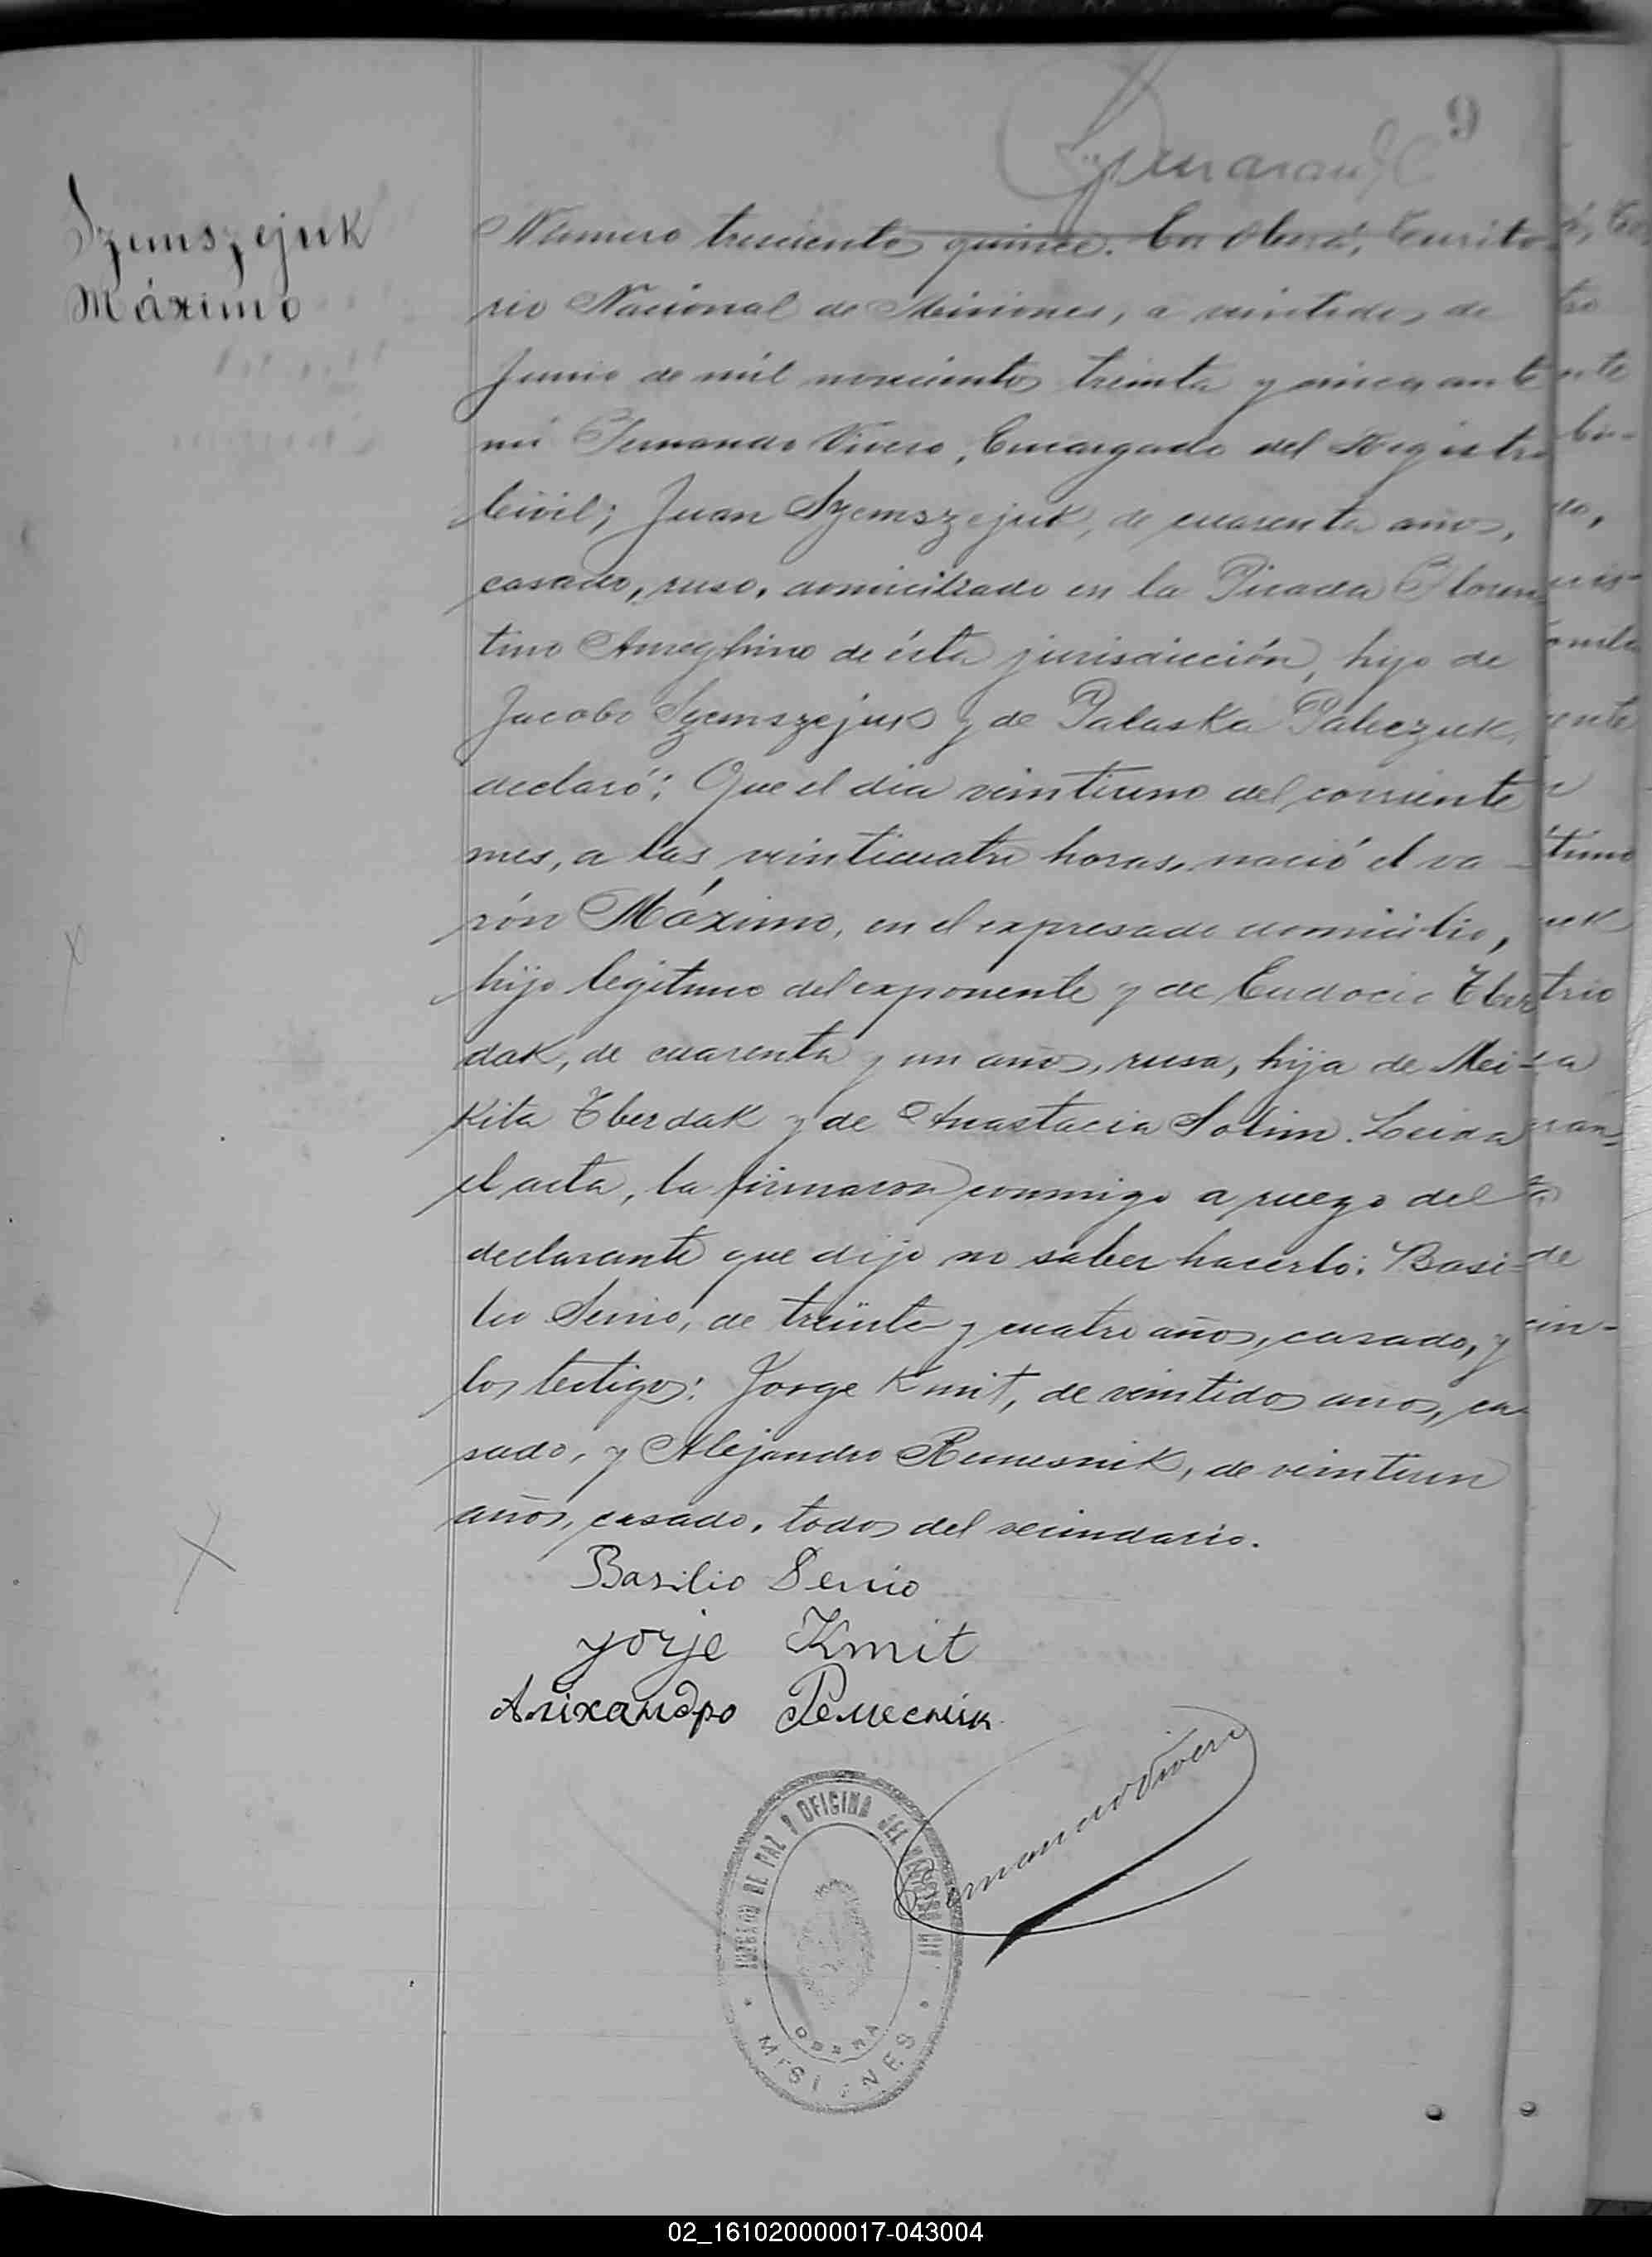 9
Szemszejuk
Máximo
Número trescientos quince. En Oberá, Territo-
rio Nacional de Misiones, a veintidos de
Junio de mil novecientos treinta y cinco, ante
mí Fernando Vivero, Encargado del Registro
Civil; Juan Szemszejuk, de cuarenta años,
casado, ruso, domiciliado en la Picada Floren-
tino Ameghino de ésta jurisdicción, hijo de
Jacobo Szemszejuk y de Palaska Paliczuk,
declaró: Que el día veintiuno del corriente
mes, a las veinticuatro horas, nació el va-
rón Máximo, en el expresado domicilio,
hijo legítimo del exponente y de Eudocia Eber
dak, de cuarenta y un años, rusa, hija de Mei-
kita Eberdak y de Anastacia Solim. Leida
el acta, la firmaron conmigo a ruego del
declarante que dijo no saber hacerlo: Basi-
lio Senio, de treinta y cuatro años, casado, y
los testigos: Jorge Kmit, de veintidos años, ca-
sado, y Alejandro Remesnik, de veintiun
años, casado, todos del vecindario.
Basilio Senio
yorje Kmit
Аліхандро Ремеснік
Fernando Vivero
JUZGADO DE PAZ Y OFICINA DEL REGISTRO CIVIL
OBERA
MISIONES
02_161020000017-043004